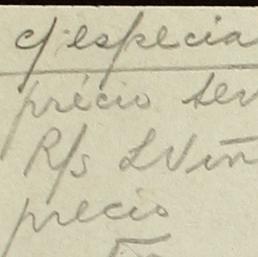 c/ especia
précio ser
R/s L Viñ
precio